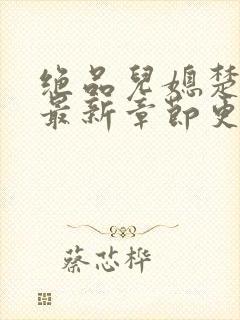 绝品儿媳楚
最新章节更
蔡芯桦